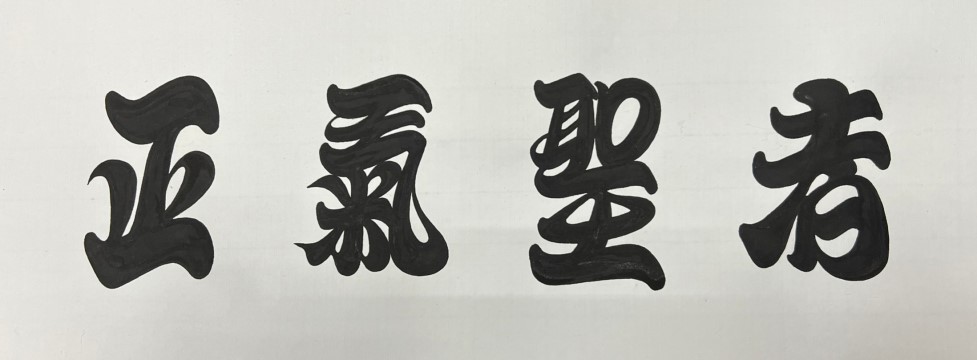 正氣聖者